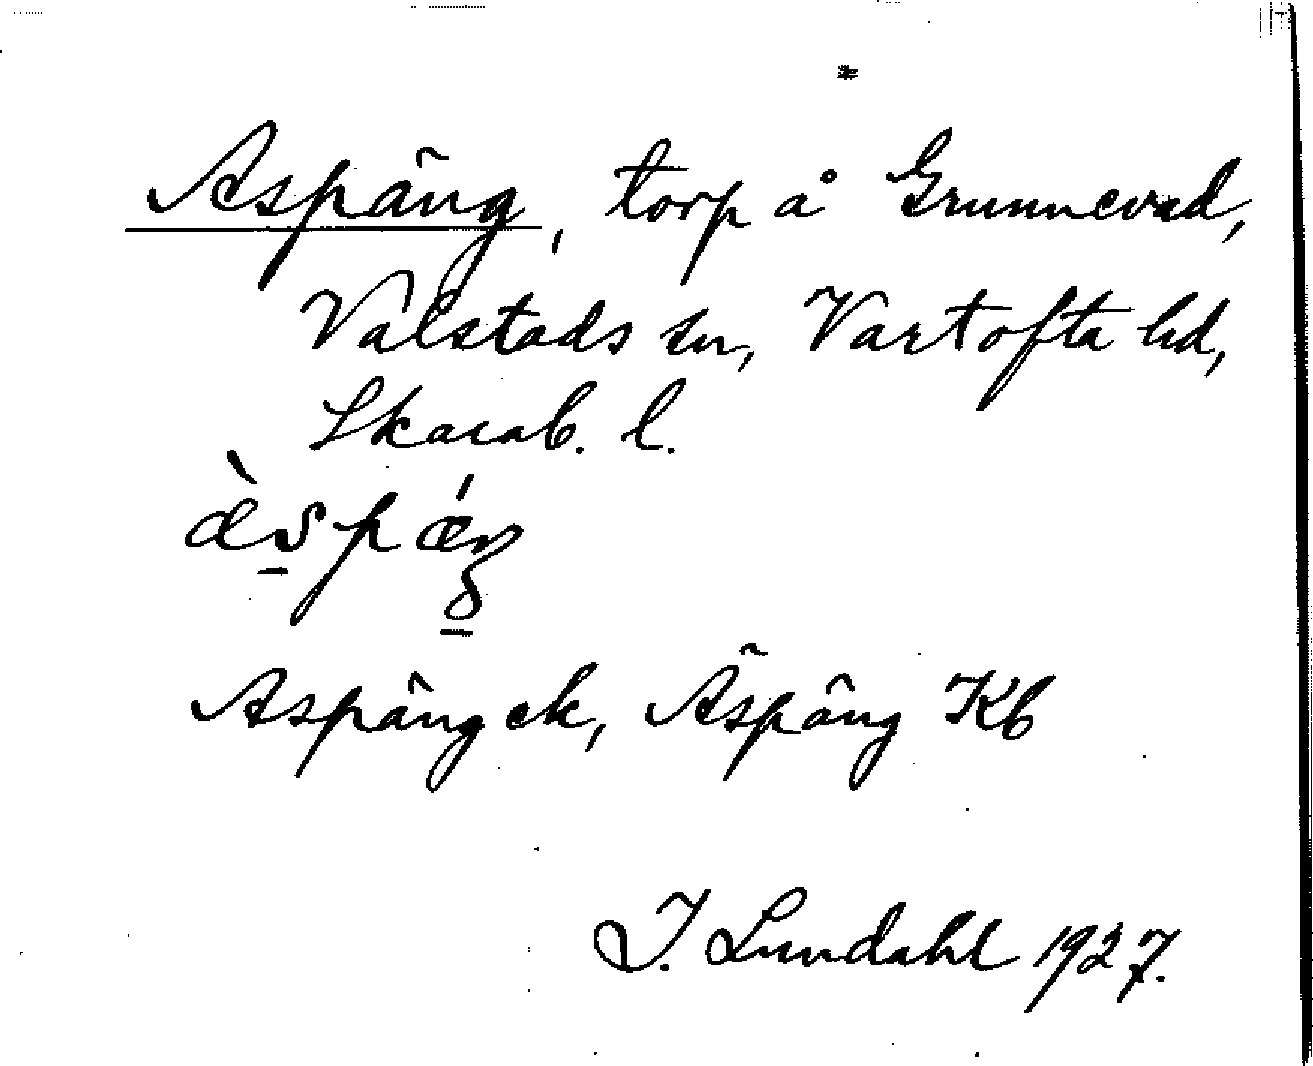 Aspäng, torp å Grunnevad,
Valstads sn, Vartofta hd,
Skarab. l.
æ̀spǽŋ
Aspäng ek, Äspäng Kb
I. Lundahl 1927.